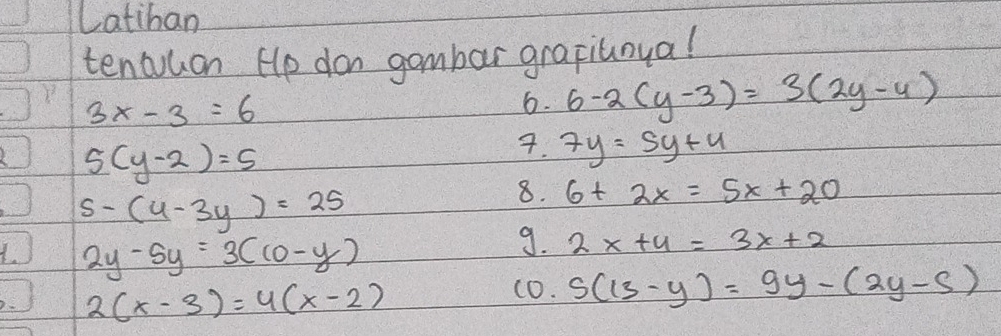 Latihan
tentukan Hp dan gambar grafiknya!
3x - 3 = 6
5(y-2) = 5
5 - (4 - 3y) = 25
2y - 5y = 3(10-y)
2(x - 3) = 4(x - 2)
6. 6 - 2(y-3) = 3(2y-4)
7. 7y = 5y+4
8. 6 + 2x = 5x + 20
9. 2x +4 = 3x+2
10. 5(13-y) = 9y - (2y-5)